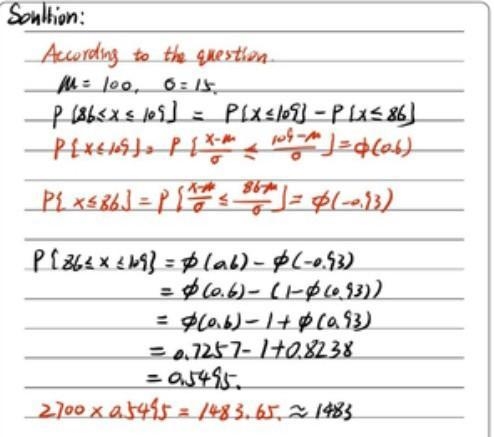 Soultion:
According to the question.
μ= 100, σ=15.
P{86≤x≤109} = P{x≤109}-P{x≤86}
P{x≤109}= P{(x-μ)/σ ≤ (109-μ)/σ}=ϕ(0.6)
P{x≤86}=P{(x-μ)/σ ≤ (86-μ)/σ}= ϕ(-0.93)
P{86≤x≤109}=ϕ(0.6)-ϕ(-0.93)
=ϕ(0.6)-(1-ϕ(0.93))
=ϕ(0.6)-1+ϕ(0.93)
=0.7257-1+0.8238
=0.5495.
2700×0.5495=1483.65.≈1483